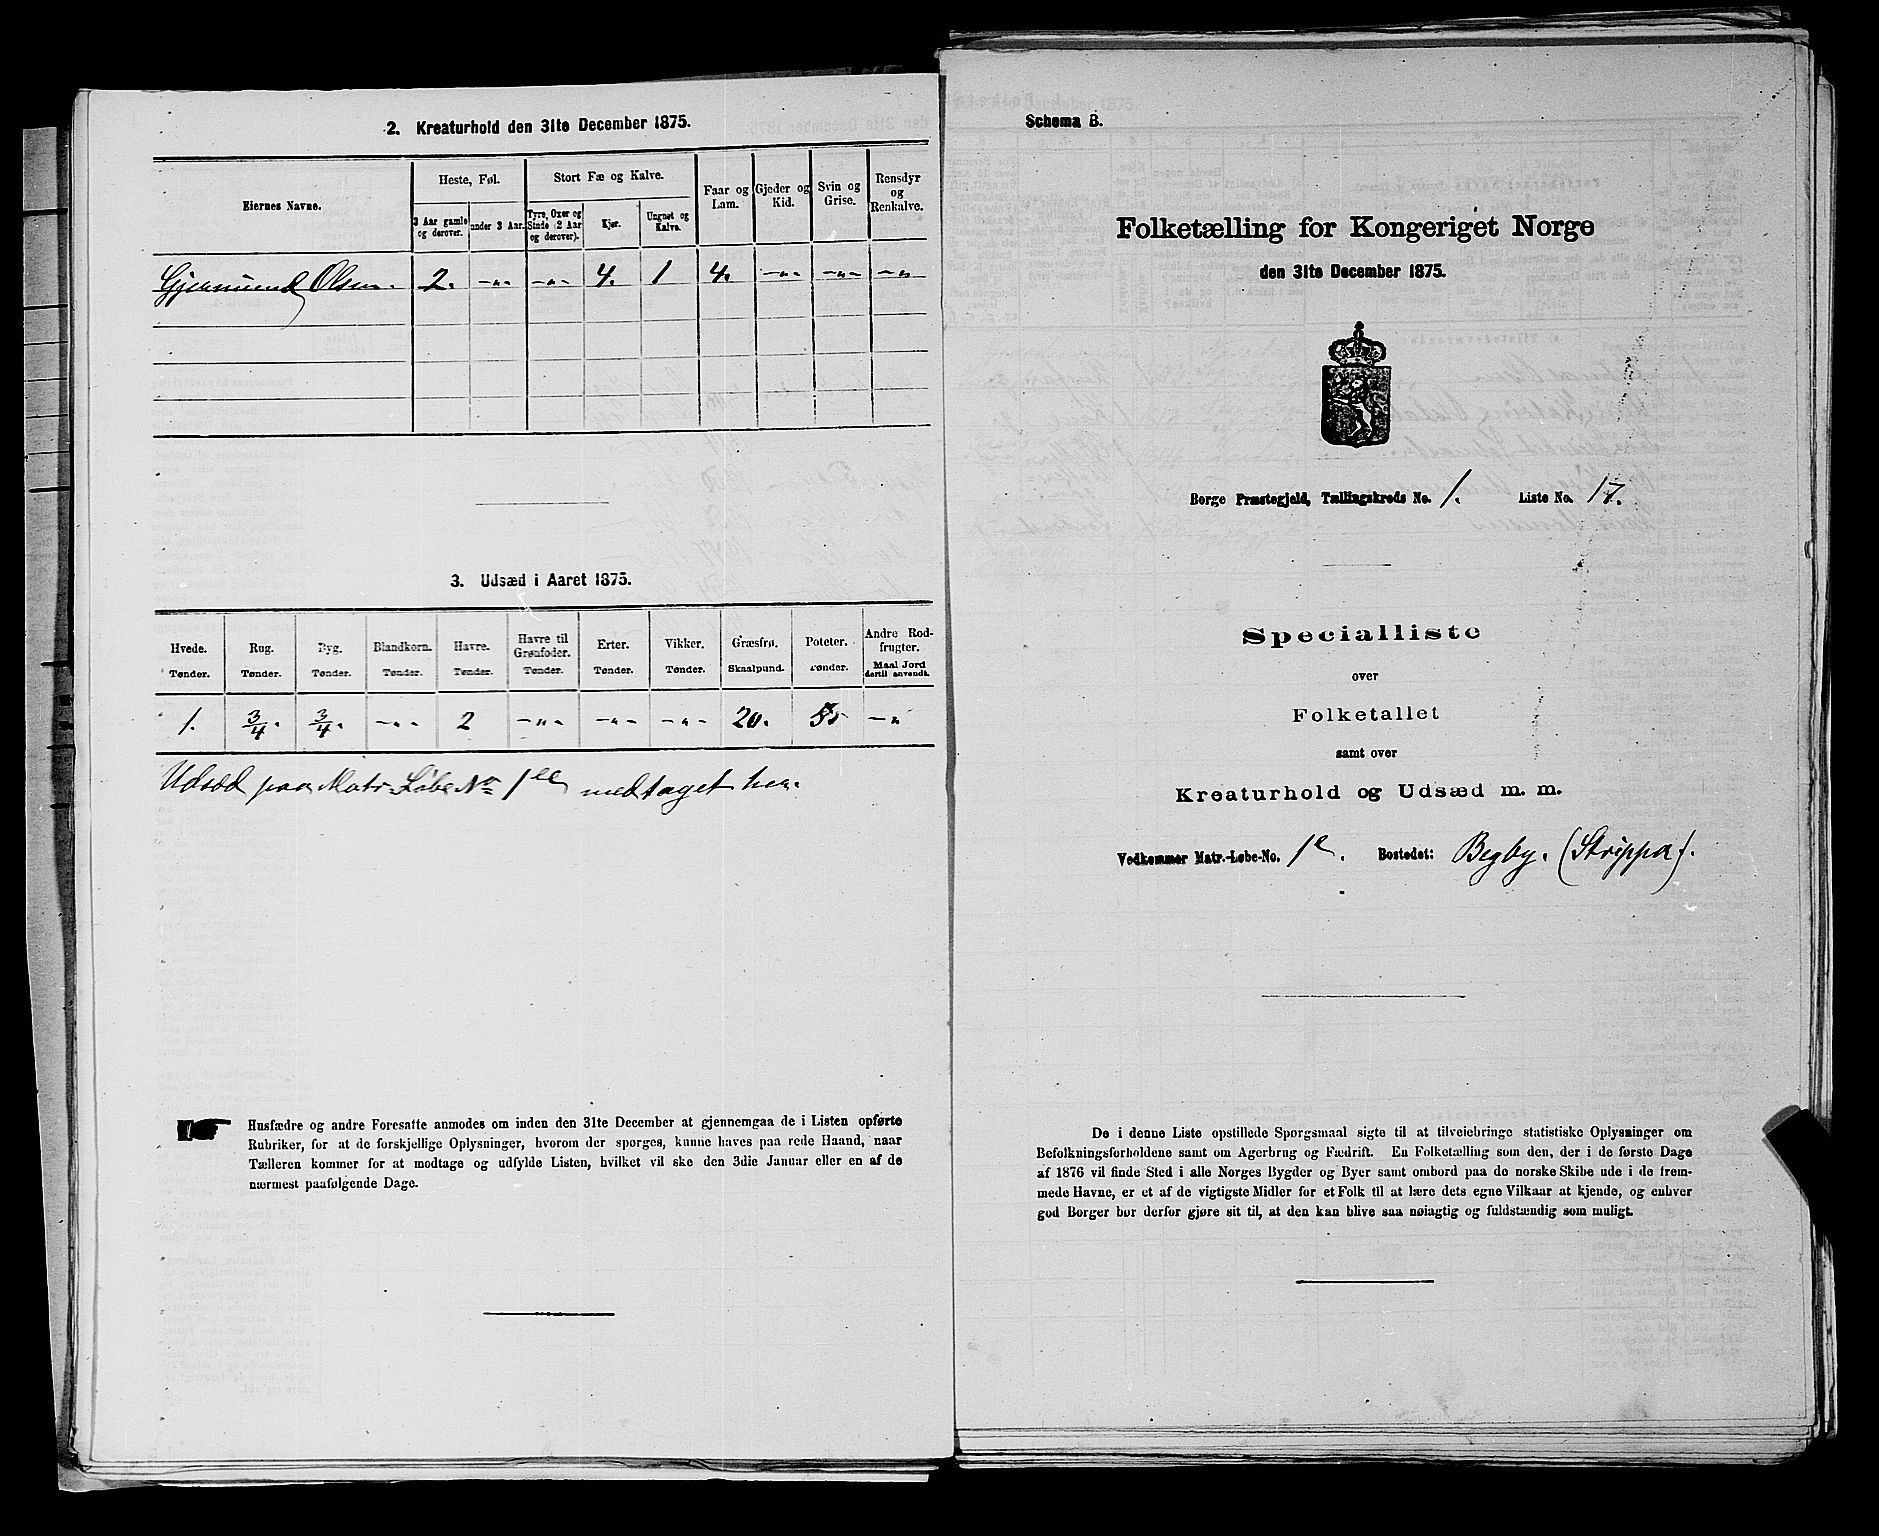 2. Kreaturhold den 31te December 1875.
Eiernes Navne.
Heste, Føl.
Stort Fæ og Kalve.
Faar og Lam.
Gjeder og Kid.
Svin og Grise.
Rensdyr og Renkalve.
3 Aar gamle og derover.
under 3 Aar.
Tyre, Oxer og Stude (2 Aar og derover).
Kjør.
Ungnøt og Kalve.
Gjermund Olsen. 2. -„- -„- 4. 1 4. -„- -„- -„
3. Udsæd i Aaret 1875.
Hvede. Rug. Byg. Blandkorn. Havre. Havre til Grønfoder. Erter. Vikker. Græsfrø. Poteter. Andre Rodfrugter.
Tønder. Tønder. Tønder. Tønder. Tønder. Tønder. Tønder. Tønder. Skaalpund. Tønder. Maal Jord dertil anvendt.
1. 3/4. 3/4. -„- 2 -„- -„- -„- 20. -„
Udsæd paa Matr Løbe No 1 medtaget her.
Husfædre og andre Foresatte anmodes om inden den 31te December at gjennemgaa de i Listen opførte
Rubriker, for at de forskjellige Oplysninger, hvorom der spørges, kunne haves paa rede Haand, naar
Tælleren kommer for at modtage og udfylde Listen, hvilket vil ske den 3die Januar eller en af de
nærmest paafølgende Dage.
Schema B.
Folketælling for Kongeriget Norge
den 31te December 1875.
Borge Præstegjeld, Tællingskreds No. 1. Liste No. 17.
Specialliste
over
Folketallet
samt over
Kreaturhold og Udsæd m. m.
Vedkommer Matr.-Løbe-No. 1e. Bostedet: Begby. (Strippa).
De i denne Liste opstillede Spørgsmaal sigte til at tilveiebringe statistiske Oplysninger om
Befolkningsforholdene samt om Agerbrug og Fædrift. En Folketælling som den, der i de første Dage
af 1876 vil finde Sted i alle Norges Bygder og Byer samt ombord paa de norske Skibe ude i de frem-
mede Havne, er et af de vigtigste Midler for et Folk til at lære dets egne Vilkaar at kjende, og enhver
god Borger bør derfor gjøre sit til, at den kan blive saa nøiagtig og fuldstændig som muligt.